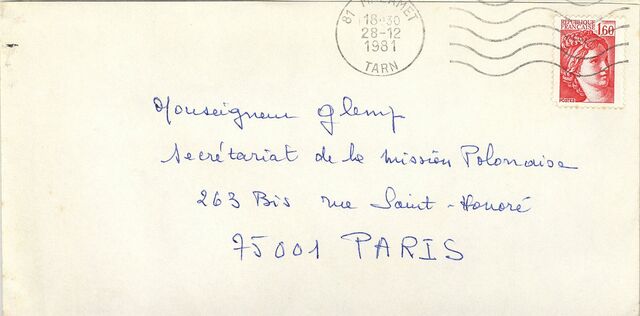 81 MAZAMET
18-30
28-12
1981
TARN
REPUBLIQUE
FRANCAISE
1,60
Monseigneur Glemp
Secrétariat de la mission Polonaise
263 Bis rue Saint-Honoré
75001 PARIS